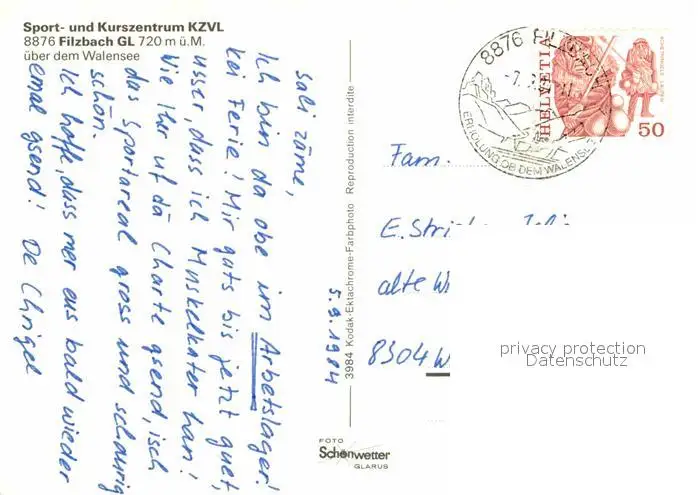 Sport- und Kurszentrum KZVL
8876 Filzbach GL 720 m ü.M.
über dem Walensee
sali zäme,
Ich bin da obe im Arbetslager!
kei Ferie! Mir guts bis jetzt guet,
usser, dass ich Muskelkater han!
Wie Ihr uf dä Charte gsend, isch
das Sportareal gross und schaurig
schön.
Ich hoffe, dass mer eus bald wieder
emal gsend! De Chrigel
5.9.1984
3984 Kodak-Ektachrome-Farbphoto Reproduction interdite
FOTO
Schönwetter
GLARUS
8876 FILZBACH
ERHOLUNG OB DEM WALENSEE
HELVETIA
50
Fam.
E.
alte
8304 W
privacy protection
Datenschutz